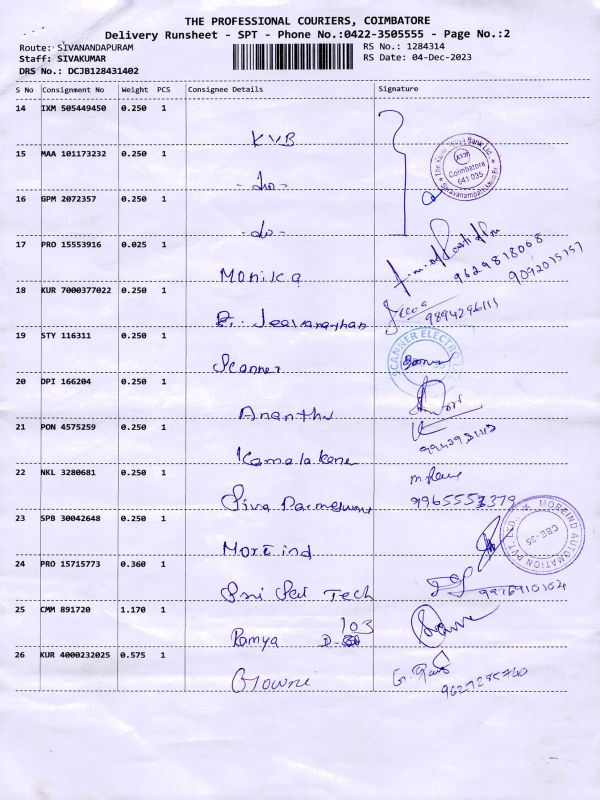 THE PROFESSIONAL COURIERS, COIMBATORE
Delivery Runsheet - SPT - Phone No.:0422-3505555 - Page No.:2
Route: SIVANANDAPURAM
RS No.: 1284314
Staff: SIVAKUMAR
RS Date: 04-Dec-2023
DRS No.: DCJB128431402
S No Consignment No Weight PCS Consignee Details Signature
14 IXM 505449450 0.250 1
KVB
15 MAA 101173232 0.250 1
- do -
The Karur Vysya Bank Ltd.
KVB
Coimbatore
641 035
Saravanampatti
16 GPM 2072357 0.250 1
- do -
17 PRO 15553916 0.025 1
Monika
9629818068
9092015157
18 KUR 7000377022 0.250 1
Jeevanathan
9894296111
19 STY 116311 0.250 1
Scanner
SCANNER ELECTRO
20 DPI 166204 0.250 1
Ananthu
21 PON 4575259 0.250 1
Kamalakani
22 NKL 3280681 0.250 1
Siva Parmeswari
9965553379
23 SPB 30042648 0.250 1
Moreind
MOREIND AUTOMATION PVT. LTD.
CBE-35
24 PRO 15715773 0.360 1
Sri Sai Tech
9976910104
25 CMM 891720 1.170 1
Ramya D-103
26 KUR 4000232025 0.575 1
Gowri
9627285740